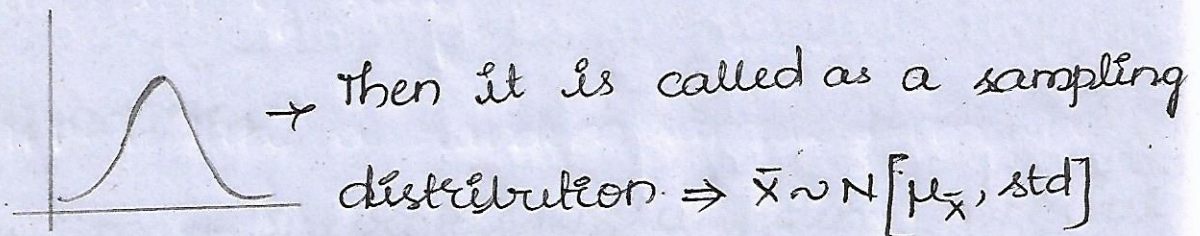 → Then it is called as a sampling
distribution. ⇒ x̄ ~ N[μx̄, std]